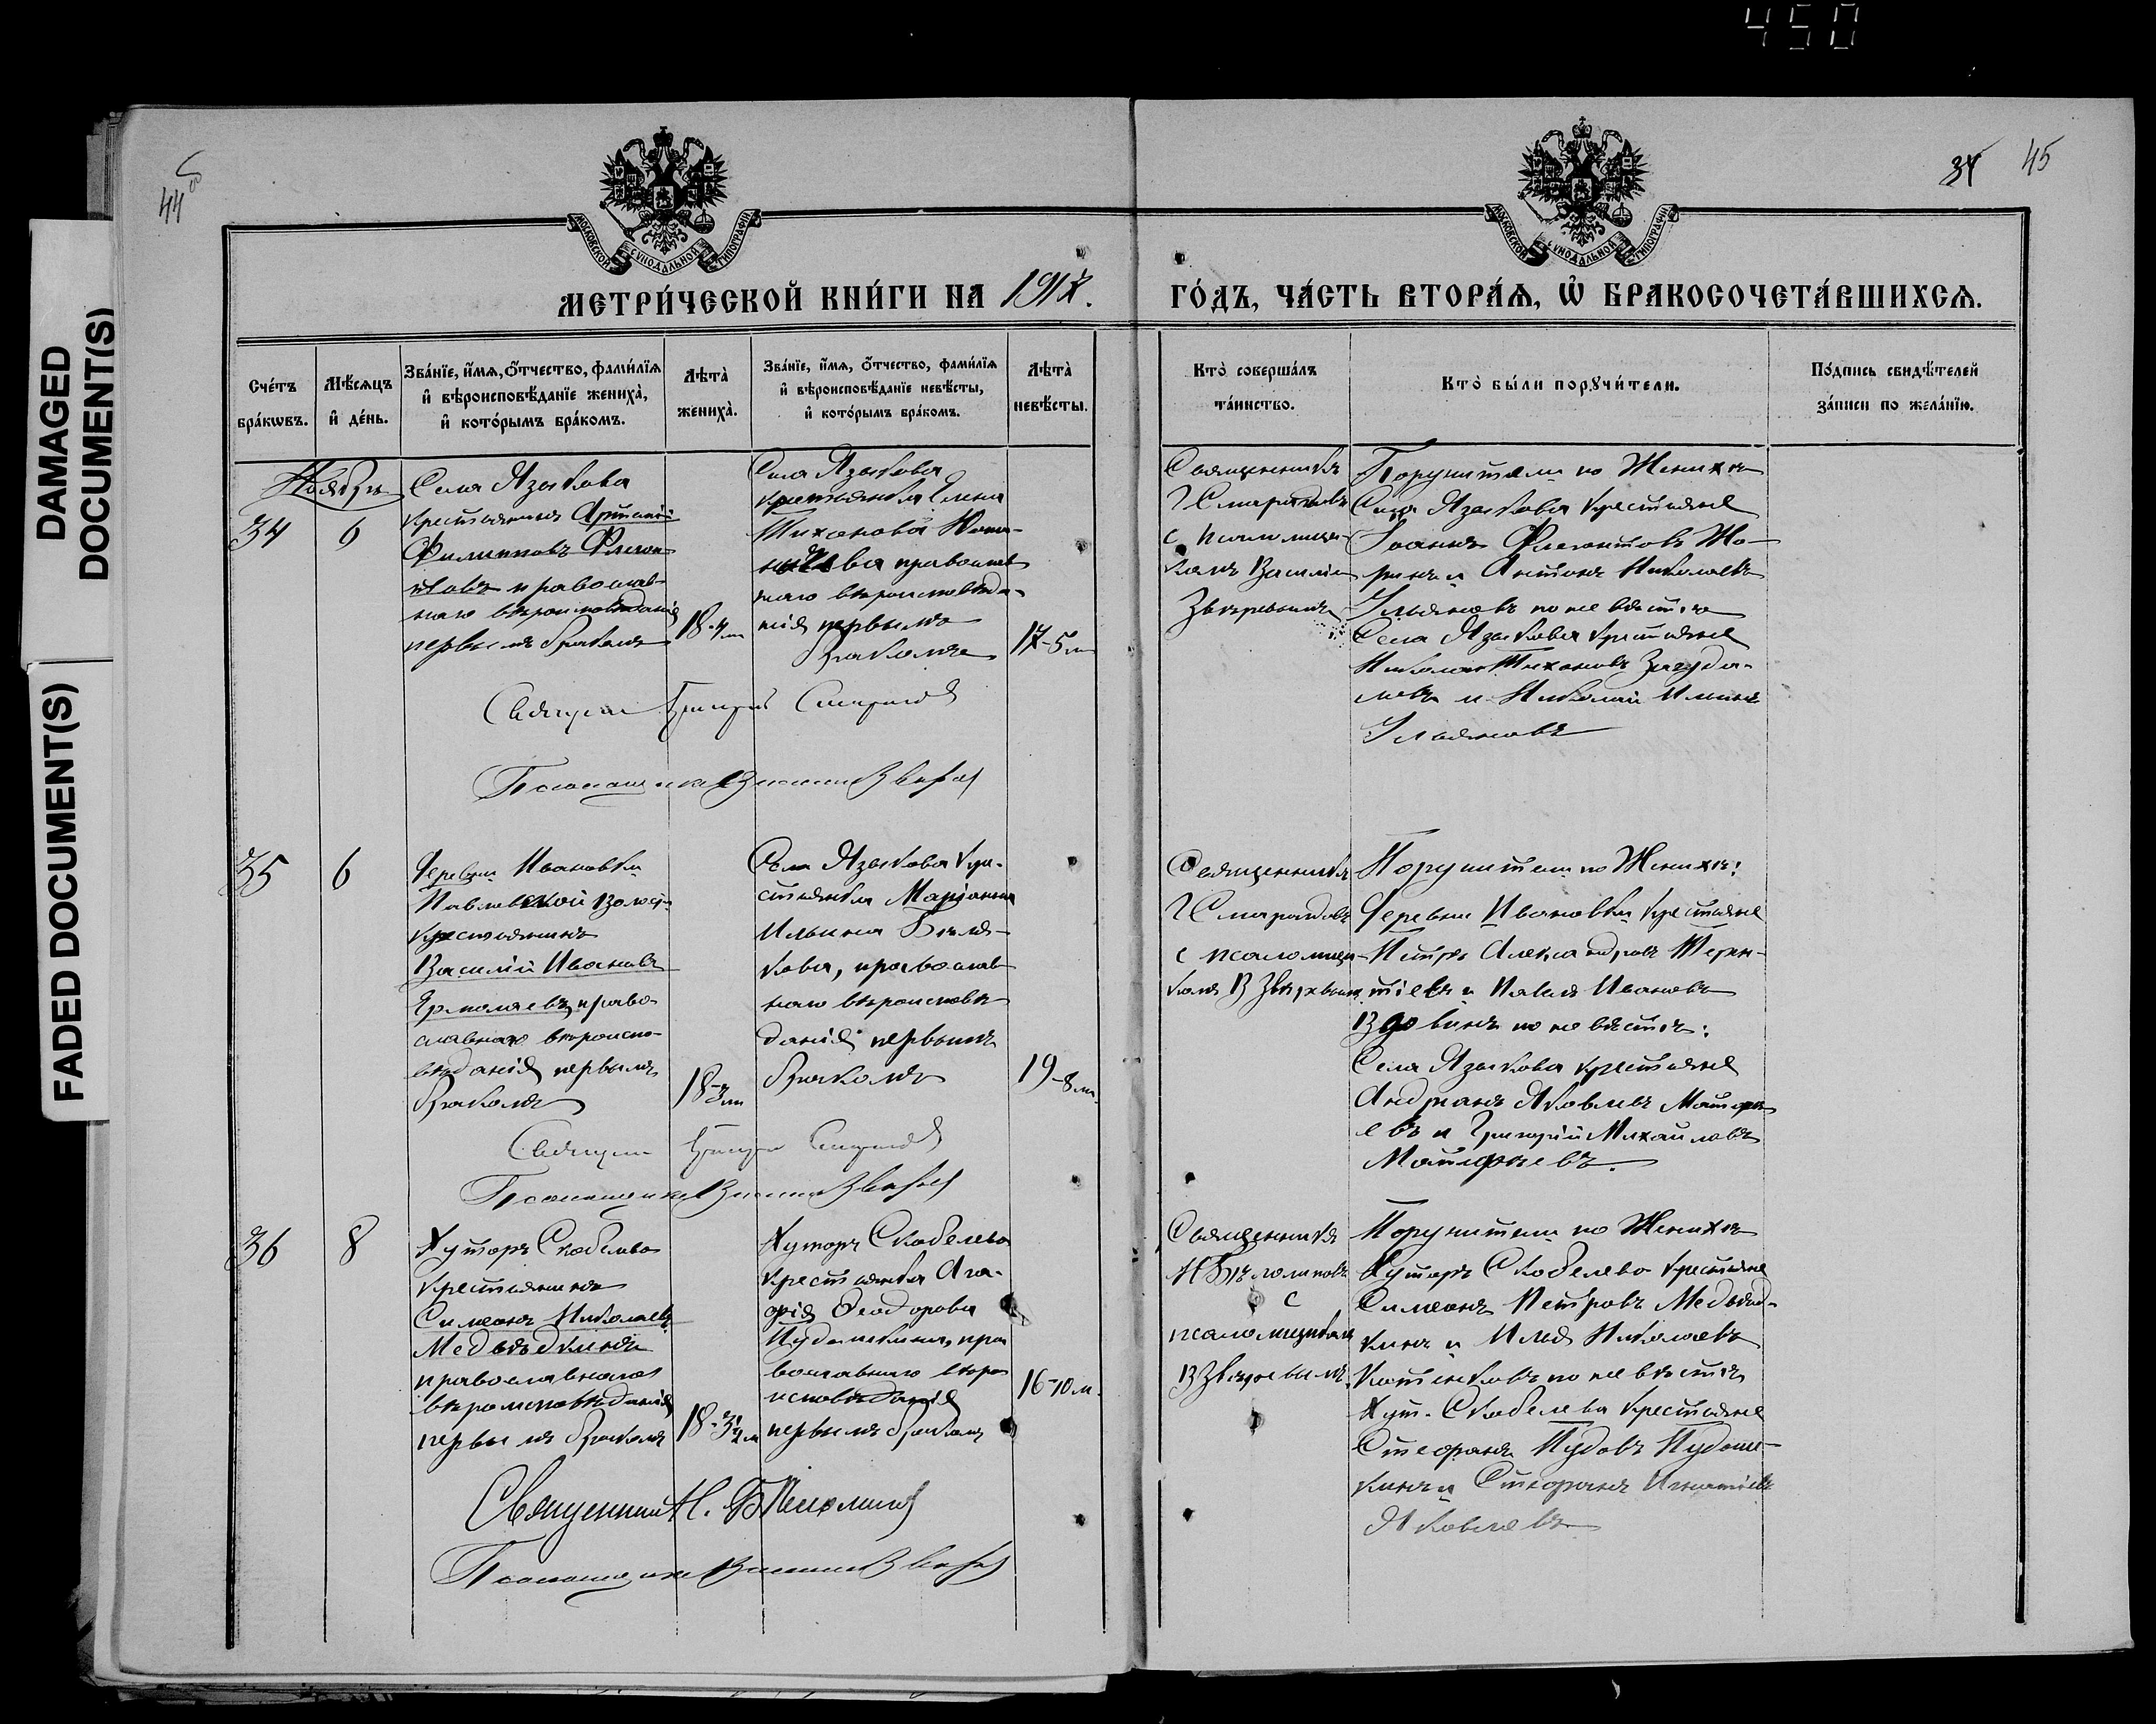 450
DAMAGED
DOCUMENT(S)
FADED DOCUMENT(S)
44 об
34 45
МОСКОВСКОЙ СѴНОДАЛЬНОЙ ТИПОГРАФІИ
МОСКОВСКОЙ СѴНОДАЛЬНОЙ ТИПОГРАФІИ
МЕТРИ́ЧЕСКОЙ КНИ́ГИ НА 1917.
ГО́ДЪ, ЧА́СТЬ ВТОРА́Ѧ, Ѽ БРАКОСОЧЕТА́ВШИХСѦ.
Сче́тъ
бра́кѡвъ.
Мѣ́сѧцъ
и҆ де́нь.
Зва́нїе, и҆́мѧ, ѻ҆́тчество, фами́лїѧ
и҆ вѣроисповѣ́данїе жениха̀,
и҆ кото́рымъ бра́комъ.
Лѣ́та̀
жениха̀.
Зва́нїе, и҆́мѧ, ѻ҆́тчество, фами́лїѧ
и҆ вѣроисповѣ́данїе невѣ́сты,
и҆ кото́рымъ бра́комъ.
Лѣ́та̀
невѣ́сты.
Кто̀ соверша́лъ
та́инство.
Кто̀ бы́ли порꙋчи́тели.
По́дпись свидѣ́телей
за́писи по жела́нїю.
Ноябрь
34
6
Села Языкова
крестьянинъ
Филипповъ
православ-
наго вѣроисповѣданія
первымъ бракомъ
18-4 м
Села Языкова
крестьянка Елена
Тихонова
православ
наго вѣроисповѣда-
нія первымъ
бракомъ
17-5 м
Священникъ
Г Смарагдовъ
с псаломщи-
комъ Василіем
Звѣревымъ
Поручители по Женихѣ
Села Языкова крестьяне
Іоаннъ Флегонтовъ
и Антонъ Николаевъ
Ульяновъ по невѣстѣ
Села Языкова крестьяне
Николай Тихоновъ
и Николай Ильинъ
Ульяновъ
Священник Григорій Смарагдовъ
Псаломщикъ Василій Звѣревъ
35
6
Деревни Ивановки
Павловской волост.
крестьянинъ
Василій Ивановъ
Ермолаевъ, право
славнаго вѣроиспо-
вѣданія первымъ
бракомъ
18-3 м
Села Языкова кре-
стьянка Маріанна
Ильина Бѣля-
кова, православ
наго вѣроисповѣ-
данія первымъ
бракомъ
19-8 м.
Священникъ
Г Смарагдовъ
с псаломщи-
комъ В Звѣревымъ
Поручители по Женихѣ:
Деревни Ивановки крестьяне
Петръ Александровъ Терен-
тіевъ и Павелъ Ивановъ
Вдовинъ по невѣстѣ:
Села Языкова крестьяне
Андріанъ Яковлевъ Матвѣ-
евъ и Григорій Михайловъ
Священник Григорій Смарагдовъ
Псаломщикъ Василій Звѣревъ
36
8
Хуторъ Скобелево
крестьянинъ
Симеонъ Николаевъ
Медвѣдкинъ
православнаго
вѣроисповѣданія
первымъ бракомъ
18-3½ м
Хуторъ Скобелево
крестьянка Ага-
фія Ѳеодорова
Пудашкина, пра
вославнаго вѣро
исповѣданія
первымъ бракомъ
16-10 м.
Священникъ
с
псаломщикомъ
В Звѣревымъ.
Поручители по Женихѣ
Хуторъ Скобелево крестьяне
Симеонъ Петровъ Медвѣд-
кинъ и Илья Николаевъ
по невѣстѣ
Хут. Скобелева крестьяне
Стефанъ Пудовъ Пудаш-
кинъ и Стефанъ Игнатіевъ
Яковлевъ
Священникъ Н.
Псаломщикъ Василій Звѣревъ